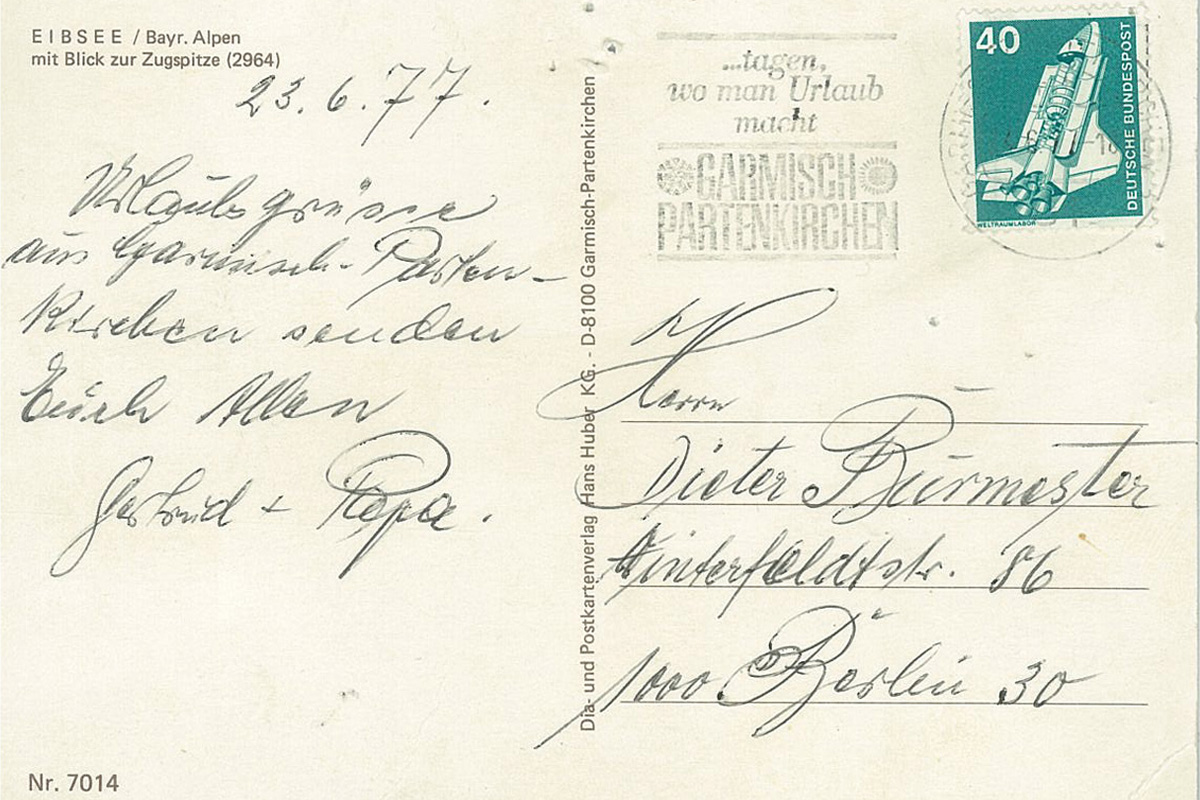 EIBSEE / Bayr. Alpen
mit Blick zur Zugspitze (2964)
23.6.77.
Urlaubsgrüsse
aus Garmisch-Parten-
Kirchen senden
Euch Allen
Gertrud + Papa.
Nr. 7014
Dia- und Postkartenverlag Hans Huber KG. - D-8100 Garmisch-Partenkirchen
...tagen,
wo man Urlaub
macht
GARMISCH
PARTENKIRCHEN
40
DEUTSCHE BUNDESPOST
WELTRAUMLABOR
Herrn
Dieter Burmester
Winterfeldtstr. 86
1000 Berlin 30